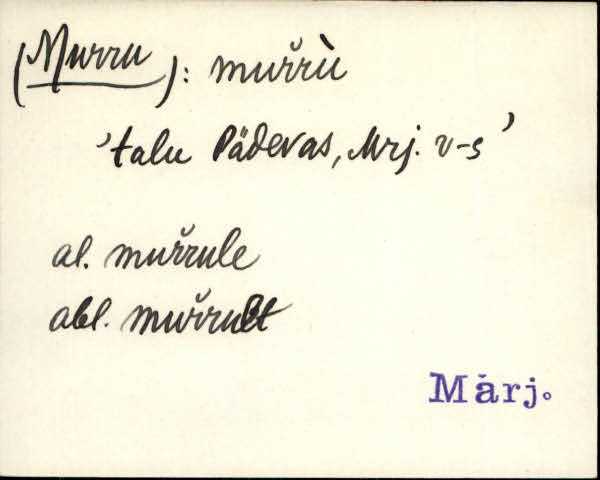 (Murru): mur̆rù
'talu Pädevas, Mrj. v-s'
al. mur̆rule
abl. mur̆rult
Märj.